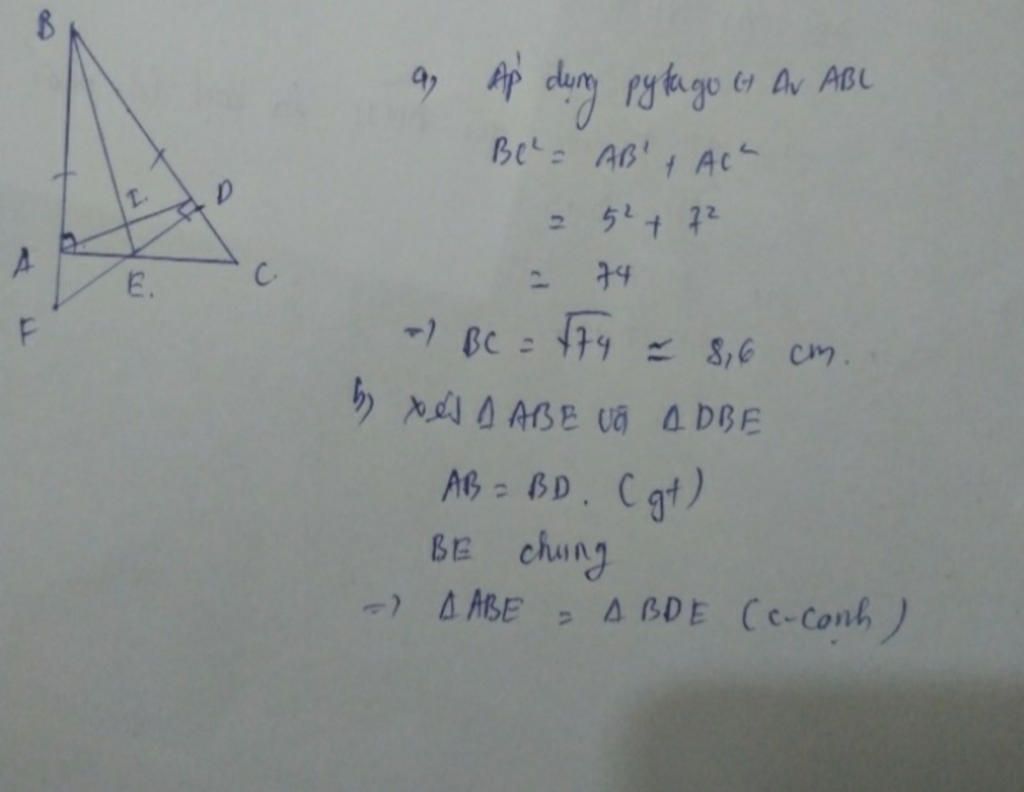 B
I.
D
A
E.
C
F
a, Áp dụng pytago Δv ABC
BC² = AB² + AC²
= 5² + 7²
= 74
=) BC = √74 ≃ 8,6 cm.
b, xét Δ ABE và Δ DBE
AB = BD. (gt)
BE chung
=) Δ ABE = Δ BDE (c-cạnh)